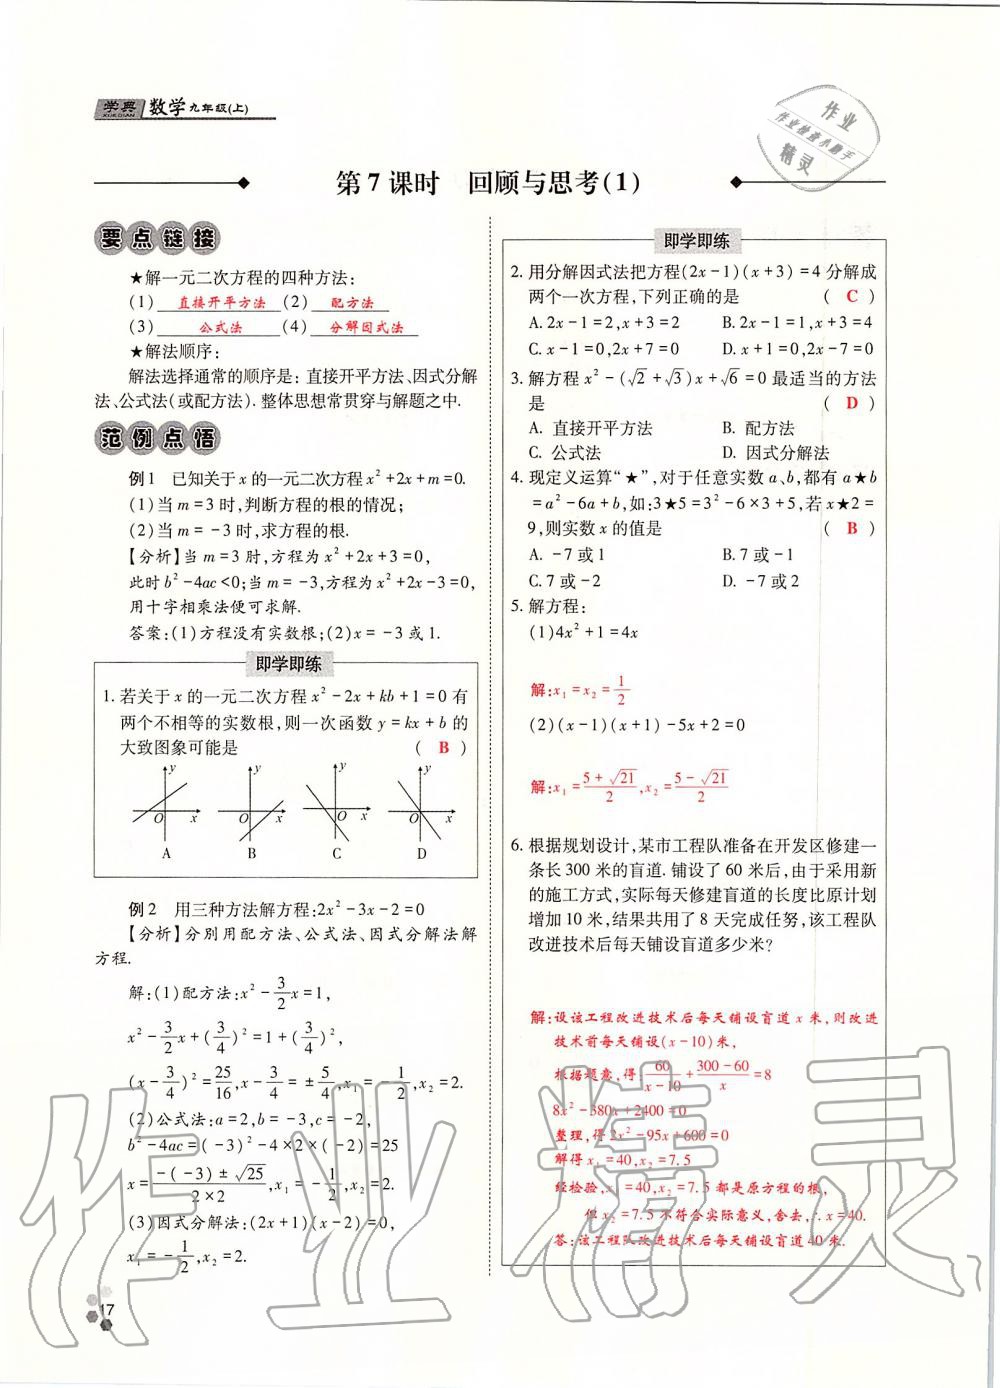 学典 数学 九年级(上)
XUE DIAN
作业
作业检查小助手
精灵
第7课时 回顾与思考(1)
要点链接
★解一元二次方程的四种方法:
(1) 直接开平方法 (2) 配方法
(3) 公式法 (4) 分解因式法
★解法顺序:
解法选择通常的顺序是: 直接开平方法、因式分解
法、公式法(或配方法). 整体思想常贯穿与解题之中.
范例点悟
例1 已知关于x的一元二次方程x²+2x+m=0.
(1)当m=3时,判断方程的根的情况;
(2)当m=-3时,求方程的根.
【分析】当m=3时,方程为x²+2x+3=0,
此时b²-4ac<0;当m=-3,方程为x²+2x-3=0,
用十字相乘法便可求解.
答案:(1)方程没有实数根;(2)x=-3或1.
即学即练
1. 若关于x的一元二次方程x²-2x+kb+1=0有
两个不相等的实数根,则一次函数y=kx+b的
大致图象可能是 ( B )
y y y y
O x O x O x O x
A B C D
例2 用三种方法解方程:2x²-3x-2=0
【分析】分别用配方法、公式法、因式分解法解
方程.
解:(1)配方法:x²-3/2x=1,
x²-3/2x+(3/4)²=1+(3/4)²,
(x-3/4)²=25/16,x-3/4=±5/4,x₁=-1/2,x₂=2.
(2)公式法:a=2,b=-3,c=-2,
b²-4ac=(-3)²-4×2×(-2)=25
x=(-(-3)±√25)/(2×2),x₁=-1/2,x₂=2.
(3)因式分解法:(2x+1)(x-2)=0,
x₁=-1/2,x₂=2.
17
即学即练
2. 用分解因式法把方程(2x-1)(x+3)=4分解成
两个一次方程,下列正确的是 ( C )
A. 2x-1=2,x+3=2 B. 2x-1=1,x+3=4
C. x-1=0,2x+7=0 D. x+1=0,2x-7=0
3. 解方程x²-(√2+√3)x+√6=0最适当的方法
是 ( D )
A. 直接开平方法 B. 配方法
C. 公式法 D. 因式分解法
4. 现定义运算“★”,对于任意实数a、b,都有a★b
=a²-6a+b,如:3★5=3²-6×3+5,若x★2=
9,则实数x的值是 ( B )
A. -7或1 B. 7或-1
C. 7或-2 D. -7或2
5. 解方程:
(1)4x²+1=4x
解:x₁=x₂=1/2
(2)(x-1)(x+1)-5x+2=0
解:x₁=(5+√21)/2,x₂=(5-√21)/2
6. 根据规划设计,某市工程队准备在开发区修建一
条长300米的盲道. 铺设了60米后,由于采用新
的施工方式,实际每天修建盲道的长度比原计划
增加10米,结果共用了8天完成任务,该工程队
改进技术后每天铺设盲道多少米?
解:设该工程改进技术后每天铺设盲道x米,则改进
技术前每天铺设(x-10)米,
根据题意,得:60/(x-10)+(300-60)/x=8
8x²-380x+2400=0
整理,得2x²-95x+600=0
解得x₁=40,x₂=7.5
经检验,x₁=40,x₂=7.5都是原方程的根,
但x₂=7.5不符合实际意义,舍去,∴x=40.
答:该工程队改进技术后每天铺设盲道40米.
作业精灵